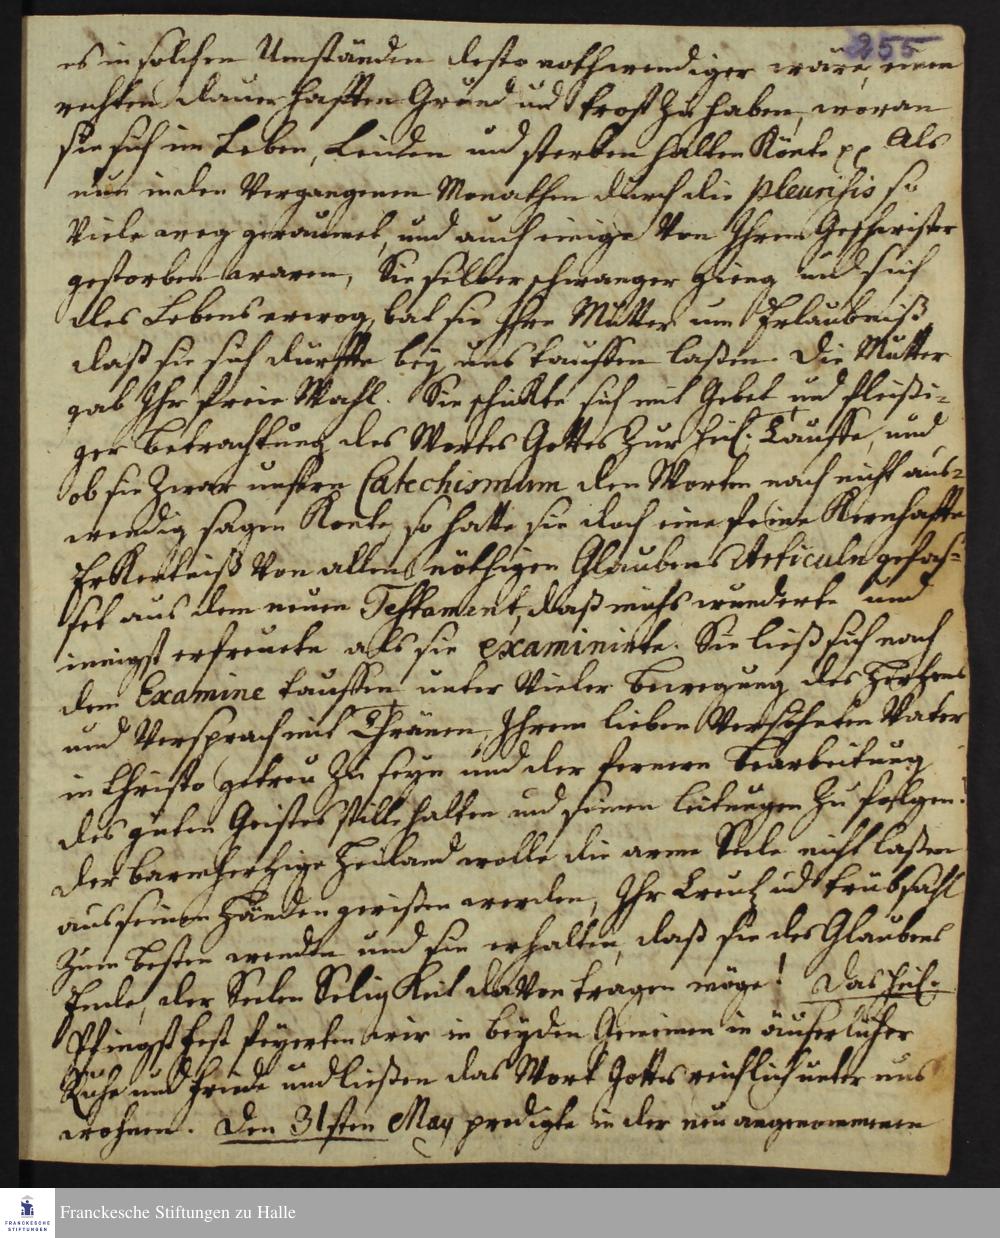 255
es in solchen Umständen desto nothwendiger wäre, einen
rechten dauerhafften Grund und Trost zu haben, woran
sie sich im Leben, Leiden und sterben halten könte pp Als
nun in den Vergangenen Monathen durch die pleurisis so
Viele weg geraumet, und auch einige Von Ihren Geschwister
gestorben waren, Sie selber schwanger gieng und sich
des Lebens erwog, bat sie Ihre Mutter um Erlaubniß
daß sie sich durffte bey uns tauffen laßen. Die Mutter
gab Ihr freie Wahl. Sie schickte sich mit Gebet und fleißi-
ger Betrachtung des Wortes Gottes zur heil. Tauffe, und
ob sie zwar unsern Catechismum den Worten nach nicht aus-
wendig sagen Konte, so hatte sie doch eine feine Kernhaffte
Erkentniß Von allen nöthigen Glaubens Articuln gefas-
set aus dem neuen Testament, daß michs wunderte und
innigst erfreuete als sie examinirte. Sie ließ sich nach
dem Examine tauffen unter Vieler Bewegung des Hertzens
und Versprach mit Thränen, Ihrem lieben Versöhnten Vater
in Christo getreu zu seyn und der fernern Bearbeitung
des guten Geistes stille halten und seinen leitungen zu folgen.
Der barmhertzige Heiland wolle die arme Seele nicht laßen
aus seinen Händen gerißen werden, Ihr Creutz und trübsahl
zum Besten wenden und sie erhalten, daß sie des Glaubens
Ende, der Seelen Seligkeit davon tragen möge! Das heil.
Pfingst Fest feyerten wir in beyden Gemeinen in äuserlicher
Ruhe und Friede und ließen das Wort Gottes reichlich unter uns
wohnen. Den 31sten May predigte in der neu angenommenen
FRANCKESCHE
STIFTUNGEN
Franckesche Stiftungen zu Halle